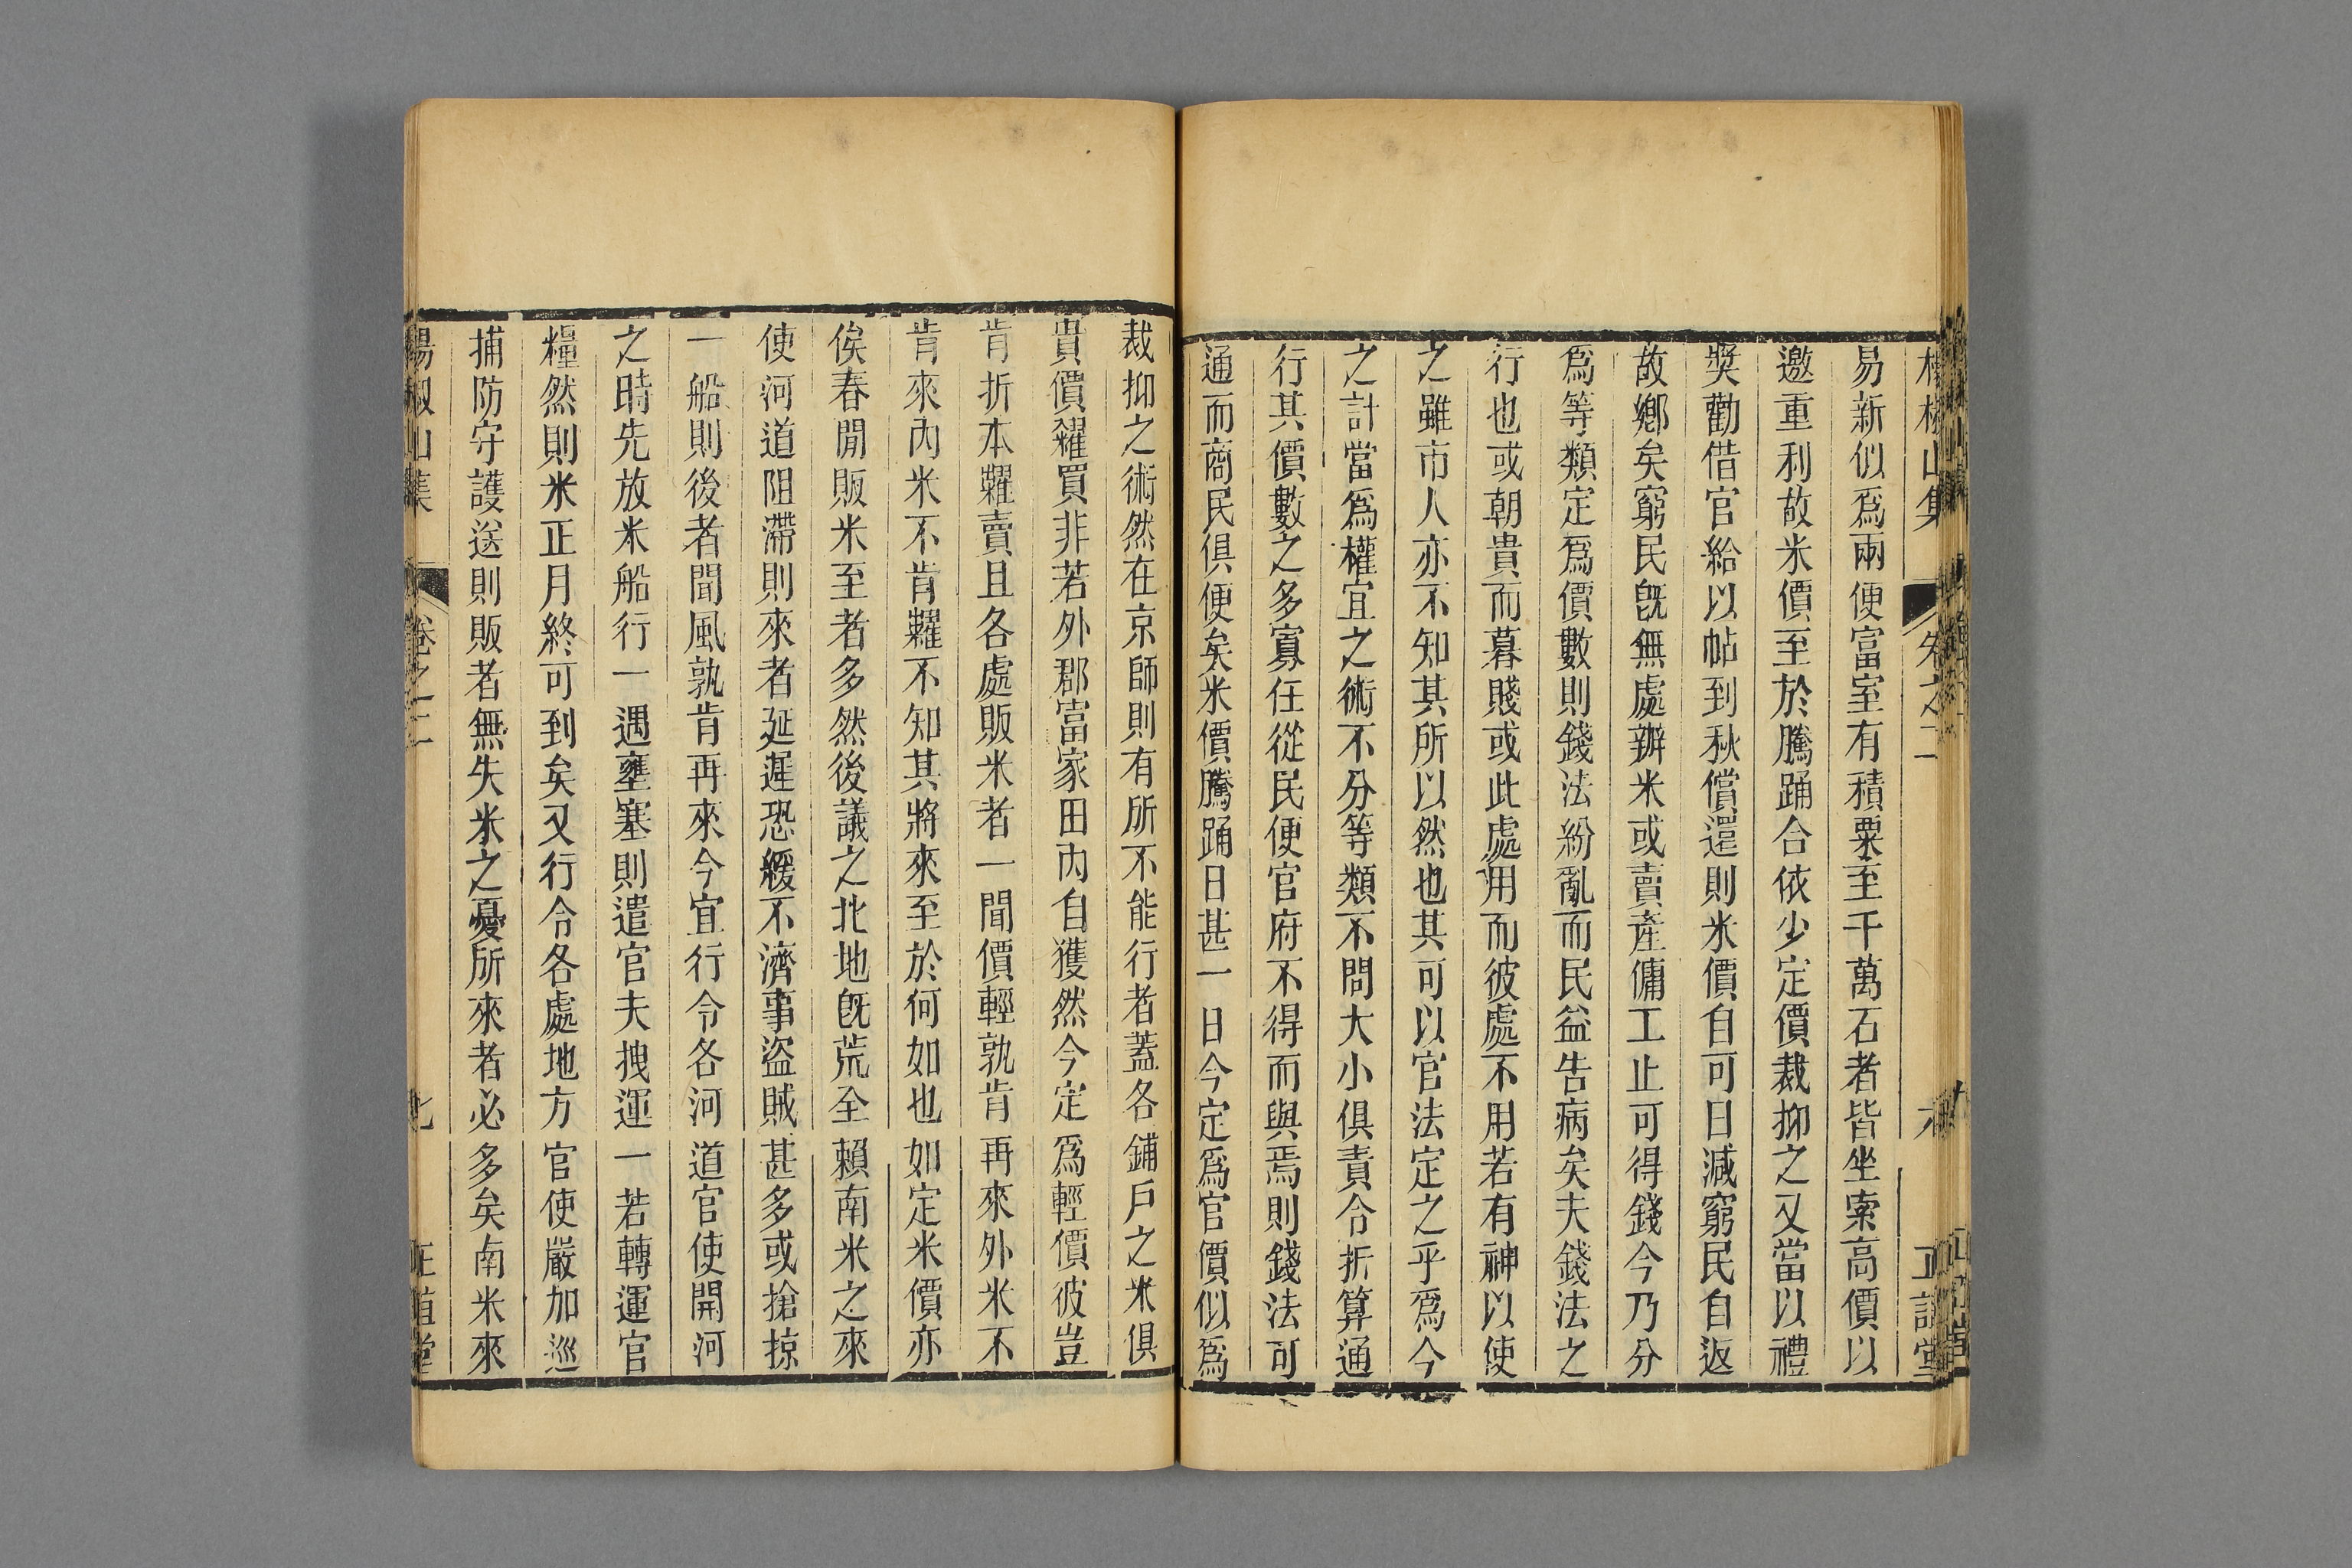 易新似爲兩便富室有積粟至千萬石者皆坐索高價以
邀重利故米價至於騰踊合依少定價裁抑之又當以禮
奬勸借官給以帖到秋償還則米價自可日減窮民自返
故鄉矣窮民旣無處辦米或賣產傭工止可得錢今乃分
爲等類定爲價數則錢法紛亂而民益告病矣夫錢法之
行也或朝貴而暮賤或此處用而彼處不用若有神以使
之雖市人亦不知其所以然也其可以官法定之乎爲今
之計當爲權宜之術不分等類不問大小俱責令折算通
行其價數之多寡任從民便官府不得而與焉則錢法可
通而商民俱便矣米價騰踊日甚一日今定爲官價似爲
裁抑之術然在京師則有所不能行者蓋各鋪戶之米俱
貴價糴買非若外郡富家田內自獲然今定爲輕價彼豈
肯折本糶賣且各處販米者一聞價輕孰肯再來外米不
肯來內米不肯糶不知其將來至於何如也如定米價亦
俟春開販米至者多然後議之北地旣荒全賴南米之來
使河道阻滯則來者延遲恐緩不濟事盜賊甚多或搶掠
一船則後者聞風孰肯再來今宜行令各河道官使開河
之時先放米船行一遇壅塞則遣官夫拽運一若轉運官
糧然則米正月終可到矣又行令各處地方官使嚴加巡
捕防守護送則販者無失米之憂所來者必多矣南米來
楊椒山集 卷之二 七 正誼堂